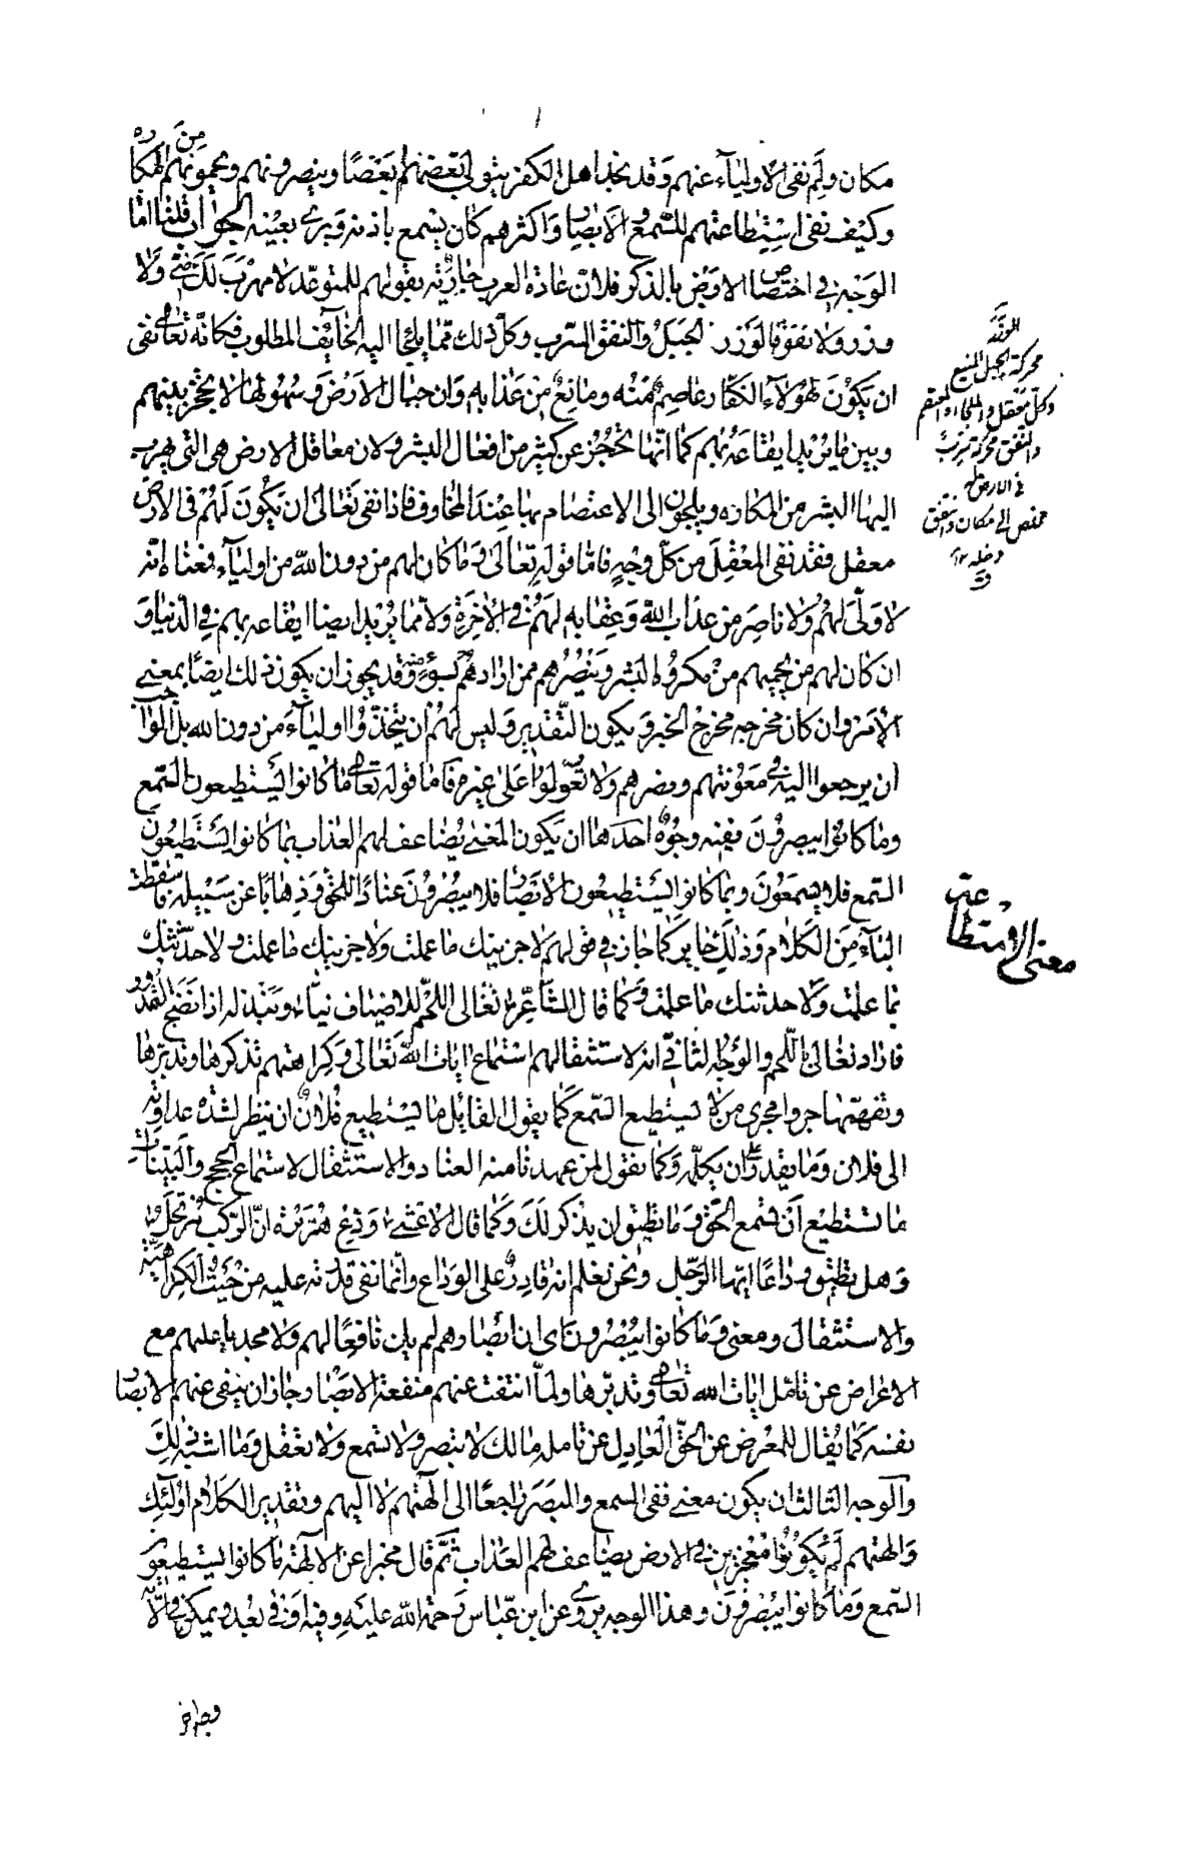 مكان ولم نفى الاولياء عنهم وقد نجد اهل الكفر يتولى بعضهم بعضا وينصرونهم ويحمونهم من المكاره
وكيف نفى استطاعتهم للسمع والابصار واكثرهم كان يسمع باذنه ويرى بعينه الجواب قلنا اما
الوجه في اختصاص الارض بالذكر فلان عادة العرب جارية بقولهم للمتوعد لا مهرب لك مني ولا
وزر ولا نفق فالوزر الجبل والنفق السرب وكل ذلك مما يلجا اليه الخائف المطلوب فكانه تعالى نفى
ان يكون لهؤلاء الكفار عاصم منه ومانع من عذابه وان جبال الارض وسهولها لا يحجز بينهم
وبين ما يريد ايقاعه بهم كما انها تحجز عن كثير من افعال البشر ولان معاقل الارض هي التي يهرب
اليها البشر من المكاره ويلجون الى الاعتصام بها عند المخاوف فاذا نفى تعالى ان يكون لهم في الارض
معقل فقد نفى المعقل من كل وجه فاما قوله تعالى وما كان لهم من دون الله من اولياء فمعناه انه
لا ولى لهم ولا ناصر من عذاب الله وعقابه لهم في الاخرة ولا مما يريد ايضا ايقاعه بهم في الدنيا و
ان كان لهم من يحميهم من مكروه البشر وينصرهم ممن ارادهم بسوء وقد يجوز ان يكون ذلك ايضا بمعنى
الامر وان كان مخرجه مخرج الخبر ويكون التقدير وليس لهم ان يتخذوا اولياء من دون الله بل الواجب
ان يرجعوا اليه في معونتهم ونصرهم ولا يعولوا على غيره فاما قوله تعالى ما كانوا يستطيعون السمع
وما كانوا يبصرون ففيه وجوه احدها ان يكون المعنى يضاعف لهم العذاب بما كانوا يستطيعون
السمع فلا يسمعون وبما كانوا يستطيعون الابصار فلا يبصرون عنادا للحق وذهابا عن سبيله فاسقطت
الباء من الكلام وذلك جايز كما جاز في قولهم لاجزينك ما عملت ولاجزينك بما عملت ولاحدثنك
بما علمت ولاحدثنك ما علمت وكما قال الشاعر نغالى اللحم للاضياف نيا ونبذله اذا نضج القدور
فاراد نغالى باللحم والوجه الثاني انه لاستثقالهم استماع ايات الله تعالى وكراهتهم تذكرها وتدبرها
وتفهمها جروا مجرى من لا يستطيع السمع كما يقول القائل ما يستطيع فلان ان ينظر لشدة عداوته
الى فلان وما يقدر ان يكلمه وكما نقول لمن عهدنا منه العناد والاستثقال لاستماع الحجج والبينات
ما تستطيع ان تسمع الحق وما تطيق ان يذكر لك وكما قال الاعشى ودع هريرة ان الركب مرتحل
وهل تطيق وداعا ايها الرجل ونحن نعلم انه قادر على الوداع وانما نفى قدرته عليه من حيث الكراهية
والاستثقال ومعنى وما كانوا يبصرون اى ان ابصارهم لم يكن نافعا لهم ولا مجديا عليهم مع
الاعراض عن تامل ايات الله تعالى وتدبرها ولما انتفت عنهم منفعة الابصار جاز ان ينفى عنهم الابصار
نفسه كما يقال للمعرض عن الحق العادل عن تامله مالك لا تبصر ولا تسمع ولا تعقل وما اشبه ذلك
والوجه الثالث ان يكون معنى نفى السمع والبصر راجعا الى الهتهم لا اليهم وتقدير الكلام اولئك
والهتهم لم يكونوا معجزين في الارض يضاعف لهم العذاب ثم قال مخبرا عن الالهة ما كانوا يستطيعون
السمع وما كانوا يبصرون وهذا الوجه يروى عن ابن عباس رحمة الله عليه وفيه ادنى بعد ويمكن
الوزر
محركة الجبل المنيع
وكل معقل والملجاء والمعتصم
والنفق محركة سرب
في الارض
مخلص الى مكان وانتفق
دخله ١٢
ق
معنى الاستطاعة
وجه اخر